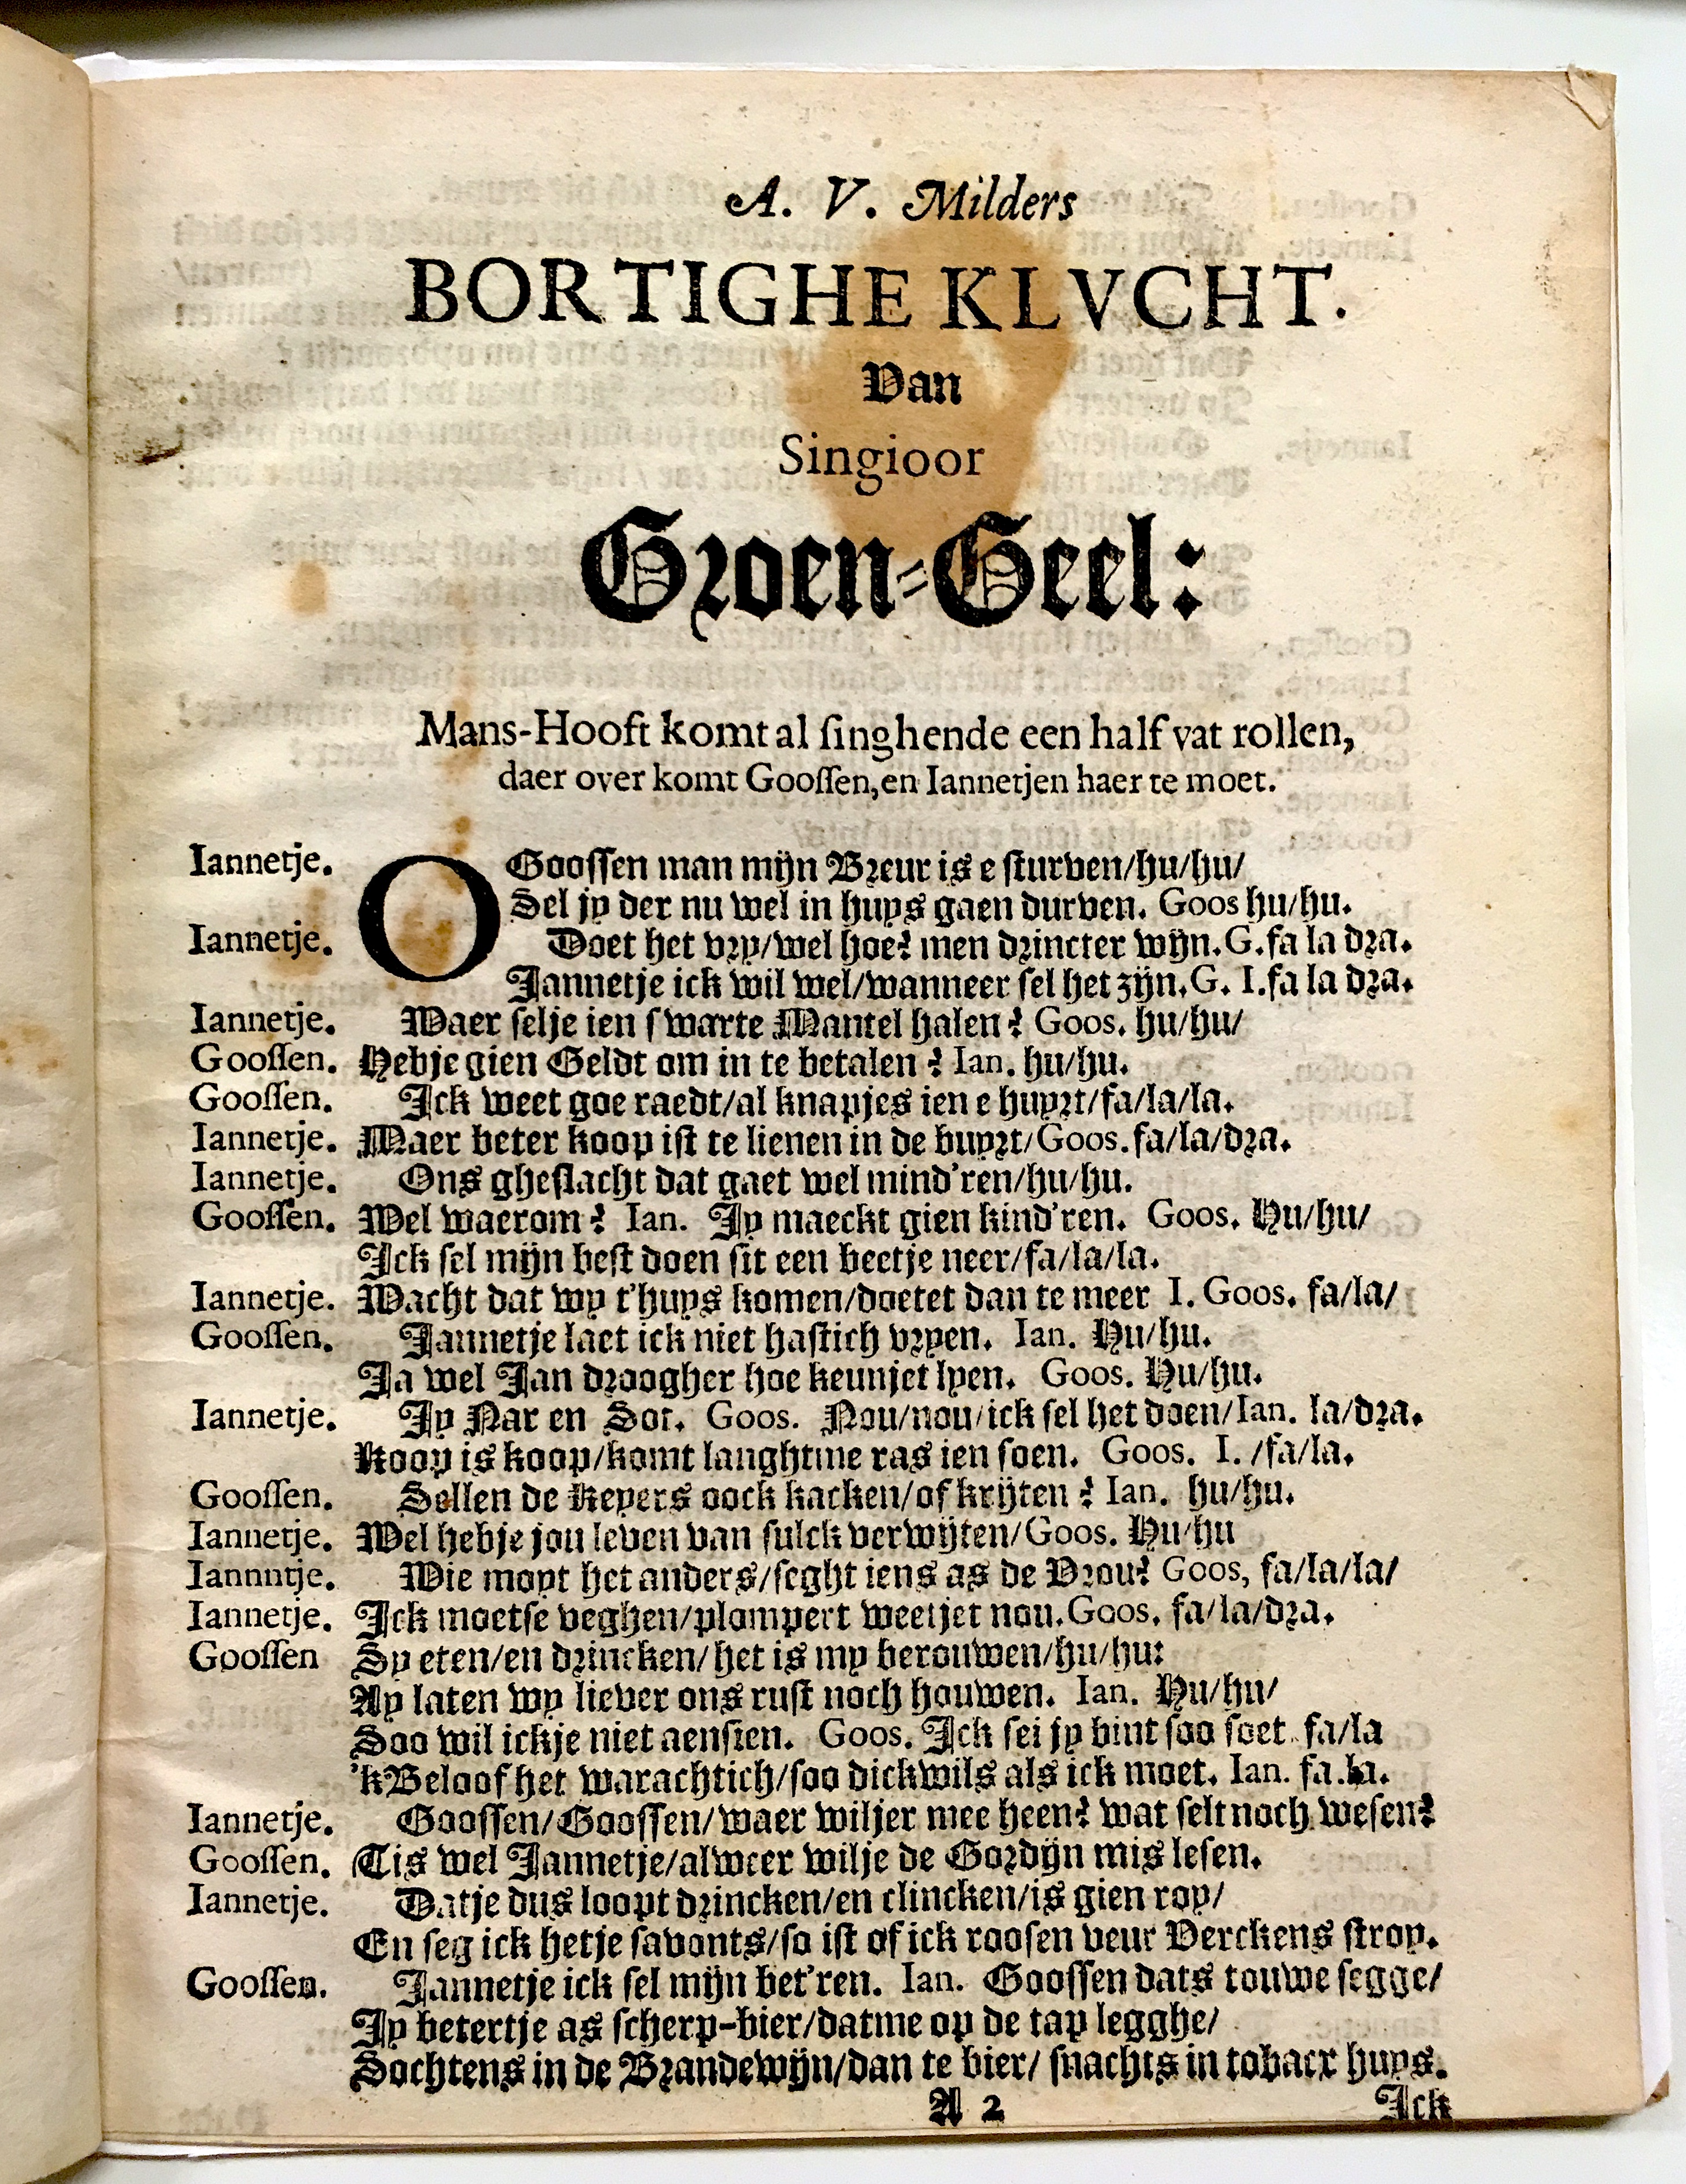 A. V. Milders
BORTIGHE KLVCHT.
Van
Singioor
Groen-Geel:
Mans-Hooft komt al singhende een half vat rollen,
daer over komt Goossen, en Iannetjen haer te moet.
Iannetje. O Goossen man mijn Breur is e sturven/hu/hu/
Sel jy der nu wel in huys gaen durven. Goos hu/hu.
Iannetje. Doet het vry/wel hoe? men drincter wijn. G. fa la dra.
Jannetje ick wil wel/wanneer sel het zijn. G. I. fa la dra.
Iannetje. Waer selje ien swarte Mantel halen? Goos. hu/hu/
Goossen. Hebje gien Geldt om in te betalen? Ian. hu/hu.
Goossen. Ick weet goe raedt/al knapjes ien e huyrt/fa/la/la.
Iannetje. Maer beter koop ist te lienen in de buyrt/Goos. fa/la/dra.
Iannetje. Ons gheslacht dat gaet wel mind'ren/hu/hu.
Goossen. Wel waerom? Ian. Jy maeckt gien kind'ren. Goos. Hu/hu/
Ick sel mijn best doen sit een beetje neer/fa/la/la.
Iannetje. Wacht dat wy t'huys komen/doetet dan te meer I. Goos. fa/la/
Goossen. Jannetje laet ick niet hastich vryen. Ian. Hu/hu.
Ja wel Jan droogher hoe keunjet lyen. Goos. Hu/hu.
Iannetje. Jy Nar en Sot. Goos. Nou/nou/ick sel het doen/Ian. la/dra.
Koop is koop/komt langhtme ras ien soen. Goos. I. /fa/la.
Goossen. Sellen de Keyers oock kacken/of krijten? Ian. hu/hu.
Iannetje. Wel hebje jou leven van sulck verwijten/Goos. Hu/hu
Iannntje. Wie moyt het anders/seght iens as de Vrou? Goos, fa/la/la/
Iannetje. Ick moetse veghen/plompert weetjet nou. Goos. fa/la/dra.
Goossen Sy eten/en drincken/het is my berouwen/hu/hu:
Ay laten wy liever ons rust noch houwen. Ian. Hu/hu/
Soo wil ickje niet aensien. Goos. Ick sei jy bint soo soet. fa/la
'k Beloof het warachtich/soo dickwils als ick moet. Ian. fa.la.
Iannetje. Goossen/Goossen/waer wiljer mee heen? wat selt noch wesen?
Goossen. Tis wel Jannetje/alweer wilje de Gordijn mis lesen.
Iannetje. Datje dus loopt drincken/en clincken/is gien roy/
En seg ick hetje savonts/so ist of ick roosen veur Verckens stroy.
Goossen. Jannetje ick sel mijn bet'ren. Ian. Goossen dats touwe segge/
Jy betertje as scherp-bier/datme op de tap legghe/
Sochtens in de Brandewijn/dan te bier/ snachts in toback huys.
A 2
Ick